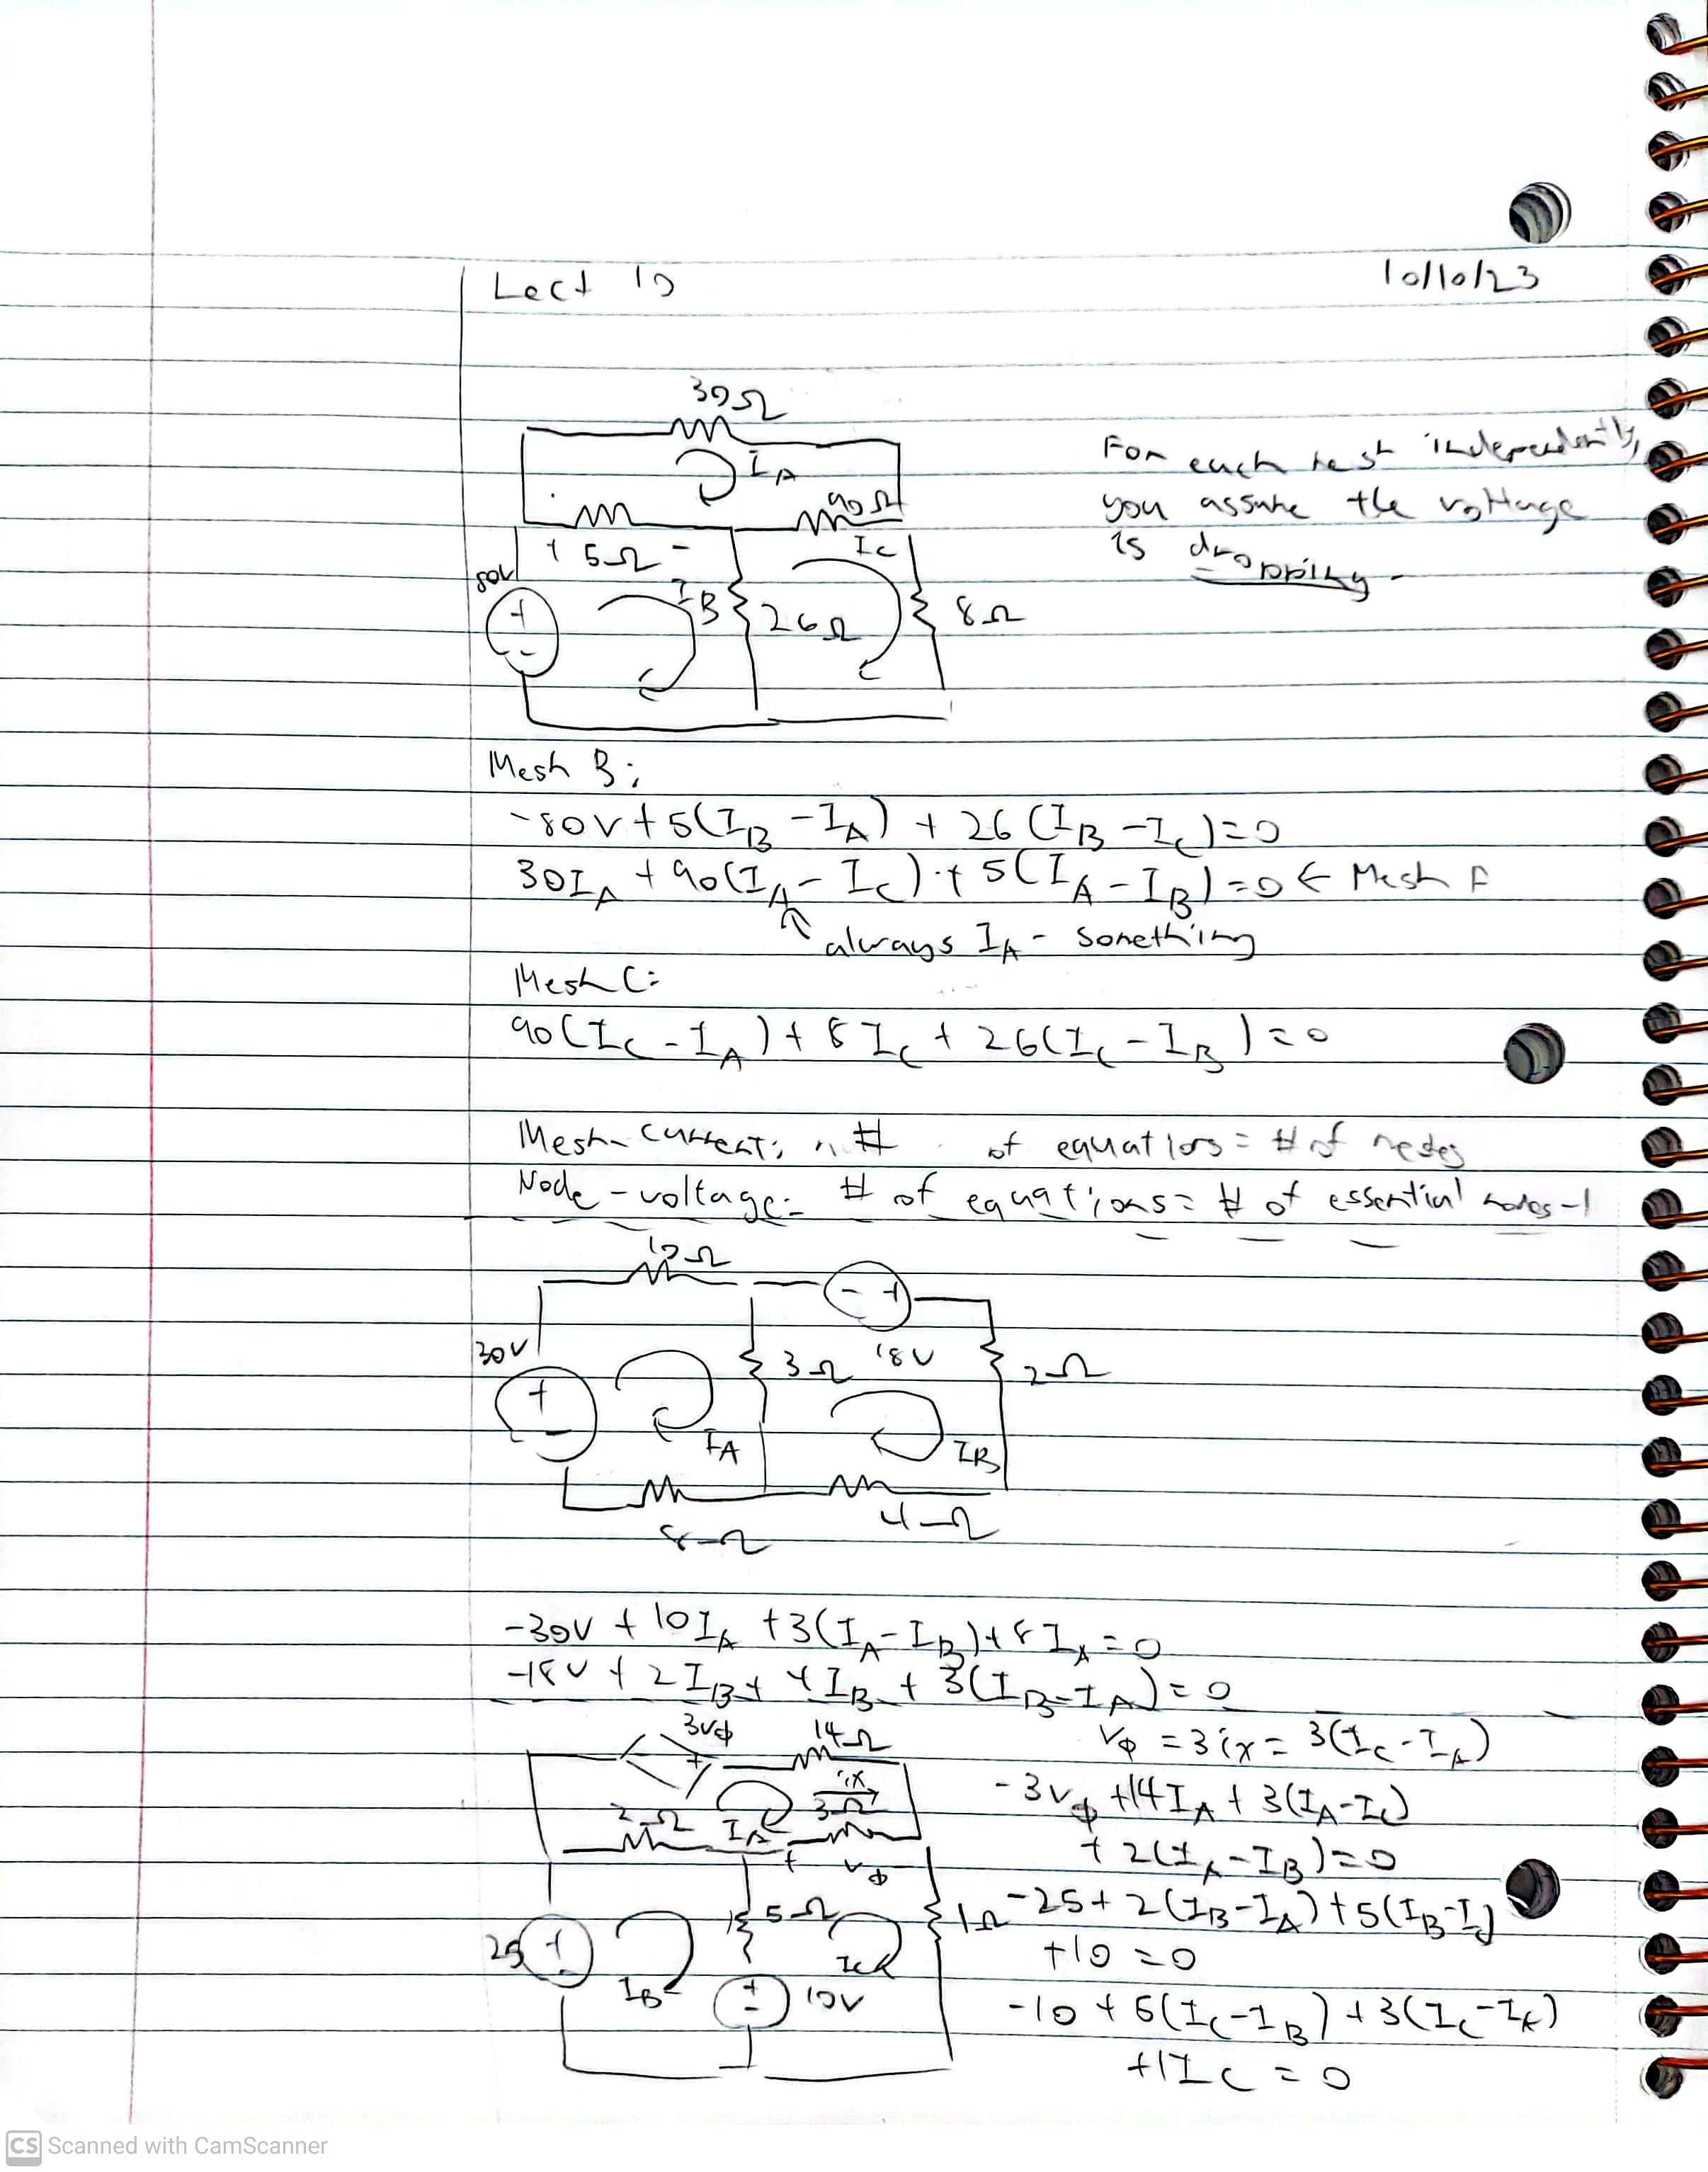 Lect 10
10/10/23
30Ω
For each mesh independently,
you assume the voltage
is dropping.
I_A
90Ω
+ 5Ω -
I_C
80V
+
-
I_B
26Ω
8Ω
Mesh B:
-80V + 5(I_B - I_A) + 26(I_B - I_C) = 0
30I_A + 90(I_A - I_C) + 5(I_A - I_B) = 0 ← Mesh A
always I_A - something
Mesh C:
90(I_C - I_A) + 8I_C + 26(I_C - I_B) = 0
Mesh-current: # of equations = # of meshes
Node-voltage: # of equations = # of essential nodes-1
10Ω
- +
30V
3Ω
18V
2Ω
+
-
I_A
I_B
8Ω
4Ω
-30V + 10I_A + 3(I_A - I_B) + 8I_A = 0
-18V + 2I_B + 4I_B + 3(I_B - I_A) = 0
3vϕ
14Ω
- +
ix
2Ω
I_A
3Ω
+ vϕ
25
+
-
5Ω
1Ω
I_B
I_C
+
-
10V
vϕ = 3ix = 3(I_C - I_A)
-3vϕ + 14I_A + 3(I_A - I_C)
+ 2(I_A - I_B) = 0
-25 + 2(I_B - I_A) + 5(I_B - I_C)
+10 = 0
-10 + 5(I_C - I_B) + 3(I_C - I_A)
+1I_C = 0
CS Scanned with CamScanner